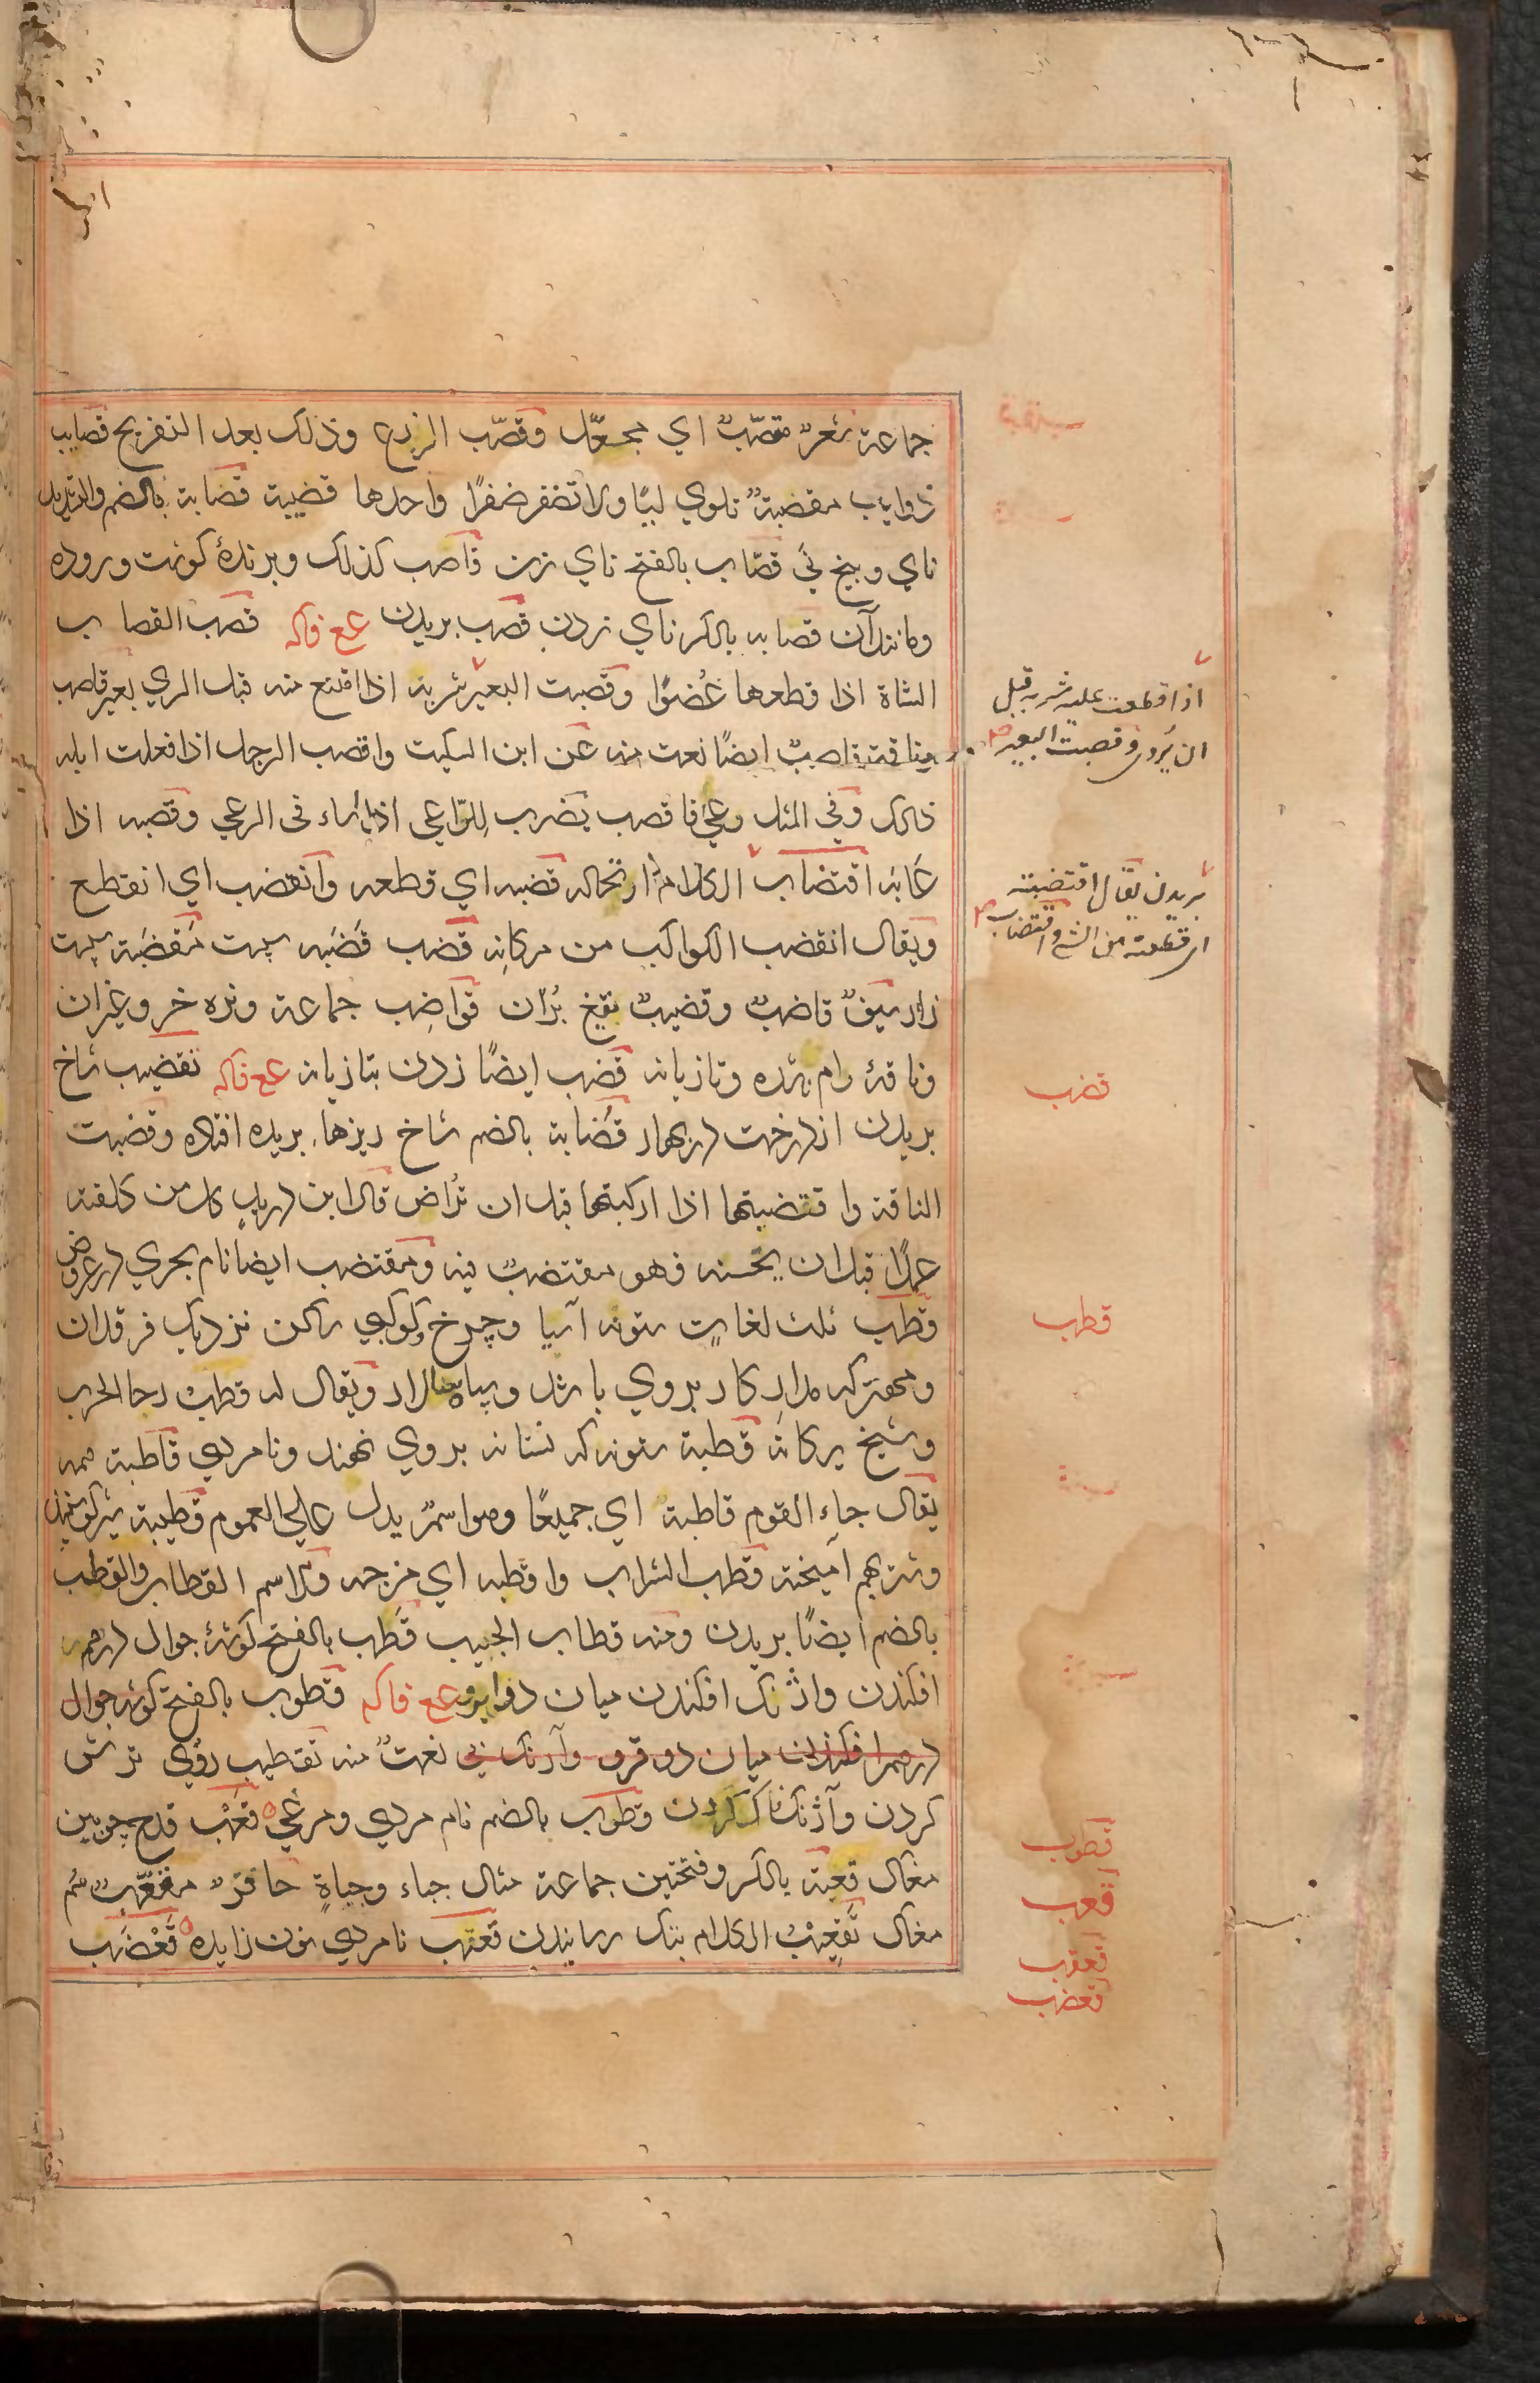 جماعة شعرٌ مقصّبٌ اي مجعّد وقصّب الزرع وذلك بعد التفريخ قصايب
ذوايب مقصبةٌ تلوي ليًّا ولا تضفر ضفرًا واحدها قصيبة قصابة بالضم والتشديد
ناي وبيخ ني قصّاب بالفتح ناي زن قاصب كذلك وبرندۀ كوشت وروده
ومانند آن قصابه بالكسر ناي زدن قصب بريدن ع ع فاكه قصب القصاب
الشاة اذا قطعها عُضوًا وقصبت البعير شربه اذا امتنع منه قبل الري بعير قاصب
وناقة قاصبٌ ايضًا نعت منه عن ابن السكيت واقصب الرجل اذا فعلت ابله
ذلك وفي المثل رعي فاقصب يضرب للرّاعي اذا اساء في الرعي وقصبه اذا
عابه اقتضاب الكلام ارتجاله قضبه اي قطعه وانقضب اي انقطع
ويقال انقضب الكواكب من مكانه قضب قَضْبه سپست مَقْضَبة سپست
زار سيفٌ قاضبٌ وقضيبٌ تيغ بُرّان قواضب جماعة ونره خر وغيران
وناقۀ رام نشده وتازيانه قضب ايضًا زدن بتازيانه ع ع فاكه تقضيب شاخ
بريدن از درخت در بهار قُضابة بالضم شاخ ريزها بريده افتاده وقضبت
الناقة واقتضبتها اذا اركبتها قبل ان تُراض قال ابن دريد كل من كلفته
عملًا قبل ان يحسنه فهو مقتضبٌ فيه ومقتضب ايضا نام بحري در عروض
قطب ثلث لغات ستونه آسيا وچرخ وكوكبي ساكن نزديك فرقدان
ومهتر كه مدار كار بروي باشد وسپاه سالار ويقال له قطب رحا الحرب
وشيخ يركانه قطبة ستونه كه نشانه بروي نهند ونامردي قاطبة همه
يقال جاء القوم قاطبةً اي جميعًا وهو اسمٌ يدل على العموم قطيبة شير كوسفند
وشتر بهم آميخته قطب الشراب واقطبه اي مزجه والاسم القطاب والقطب
بالضم ايضًا بريدن ومنه قطاب الجيب قَطب بالفتح كوشۀ جوال درهم
افكندن واژنك افكندن ميان دو ابرو ع ع فاكه قطوب بالفتح كوشه جوال
درهم افكندن ميان دو ابرو وآژنك ني نعتٌ منه تقطيب روي ترش
كردن وآژنكناك كردن وقطوب بالضم نام مردي ومرغي قَعْب قدح چوبين
مغاك قعبة بالكسر وفتحتين جماعة مثال جباء وجباةٍ حافرٌ مقعّبٌ سم
مغاك تقعيب الكلام بتك رسانيدن قعنب نامردي نون زايده قَعْضَب
اذا قطعت عليه شربه قبل
ان يُروى وقصبت البعير
بريدن يقال اقتضبته
اي قطعته من الشئ واقتضاب
قضب
قطب
قطوب
قعب
قعنب
قعضب